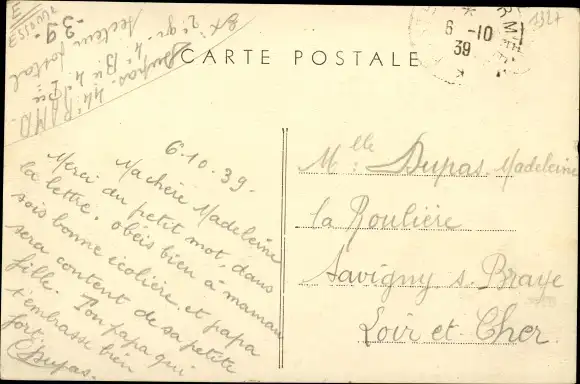 Ex: 2ᵉ cl. Dupas. 44ᵉ R.A.M.D.
Secteur postal
390
1327
CARTE POSTALE
6 -10
39
6.10.39.
Ma chère Madeleine
Merci du petit mot, dans
la lettre. obéis bien à maman
sois bonne écolière. et papa
sera content de sa petite
fille. Ton papa qui
t'embrasse bien
fort.
CDupas.
Mlle: Dupas. Madeleine
la Roulière
Savigny s. Braye
Loir et Cher.